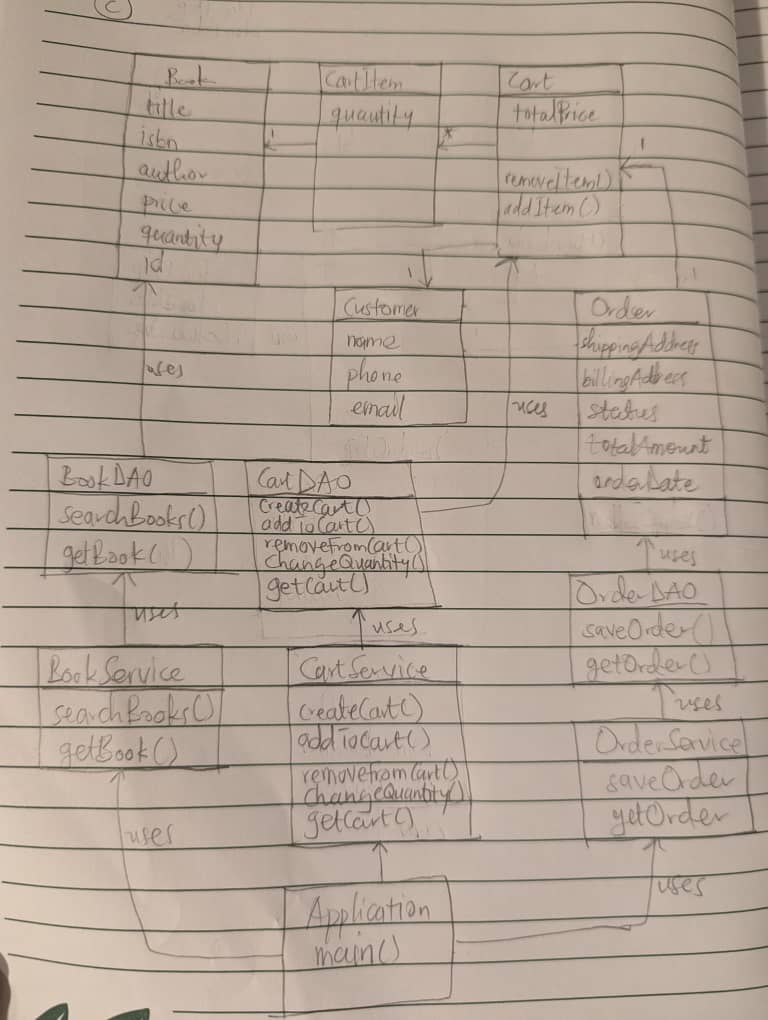 C
Book
title
isbn
author
price
quantity
id
CartItem
quantity
Cart
totalPrice
removeItem()
addItem()
1
*
1
1
Customer
name
phone
email
Order
shippingAddress
billingAddress
status
totalAmount
orderDate
uses
uses
BookDAO
searchBooks()
getBook( )
CartDAO
createCart()
addToCart()
removeFromCart()
changeQuantity()
getCart()
uses
OrderDAO
saveOrder()
getOrder()
uses
uses
uses
BookService
searchBooks()
getBook()
CartService
createCart()
addToCart()
removeFromCart()
changeQuantity()
getCart()
OrderService
saveOrder
getOrder
uses
uses
Application
main()